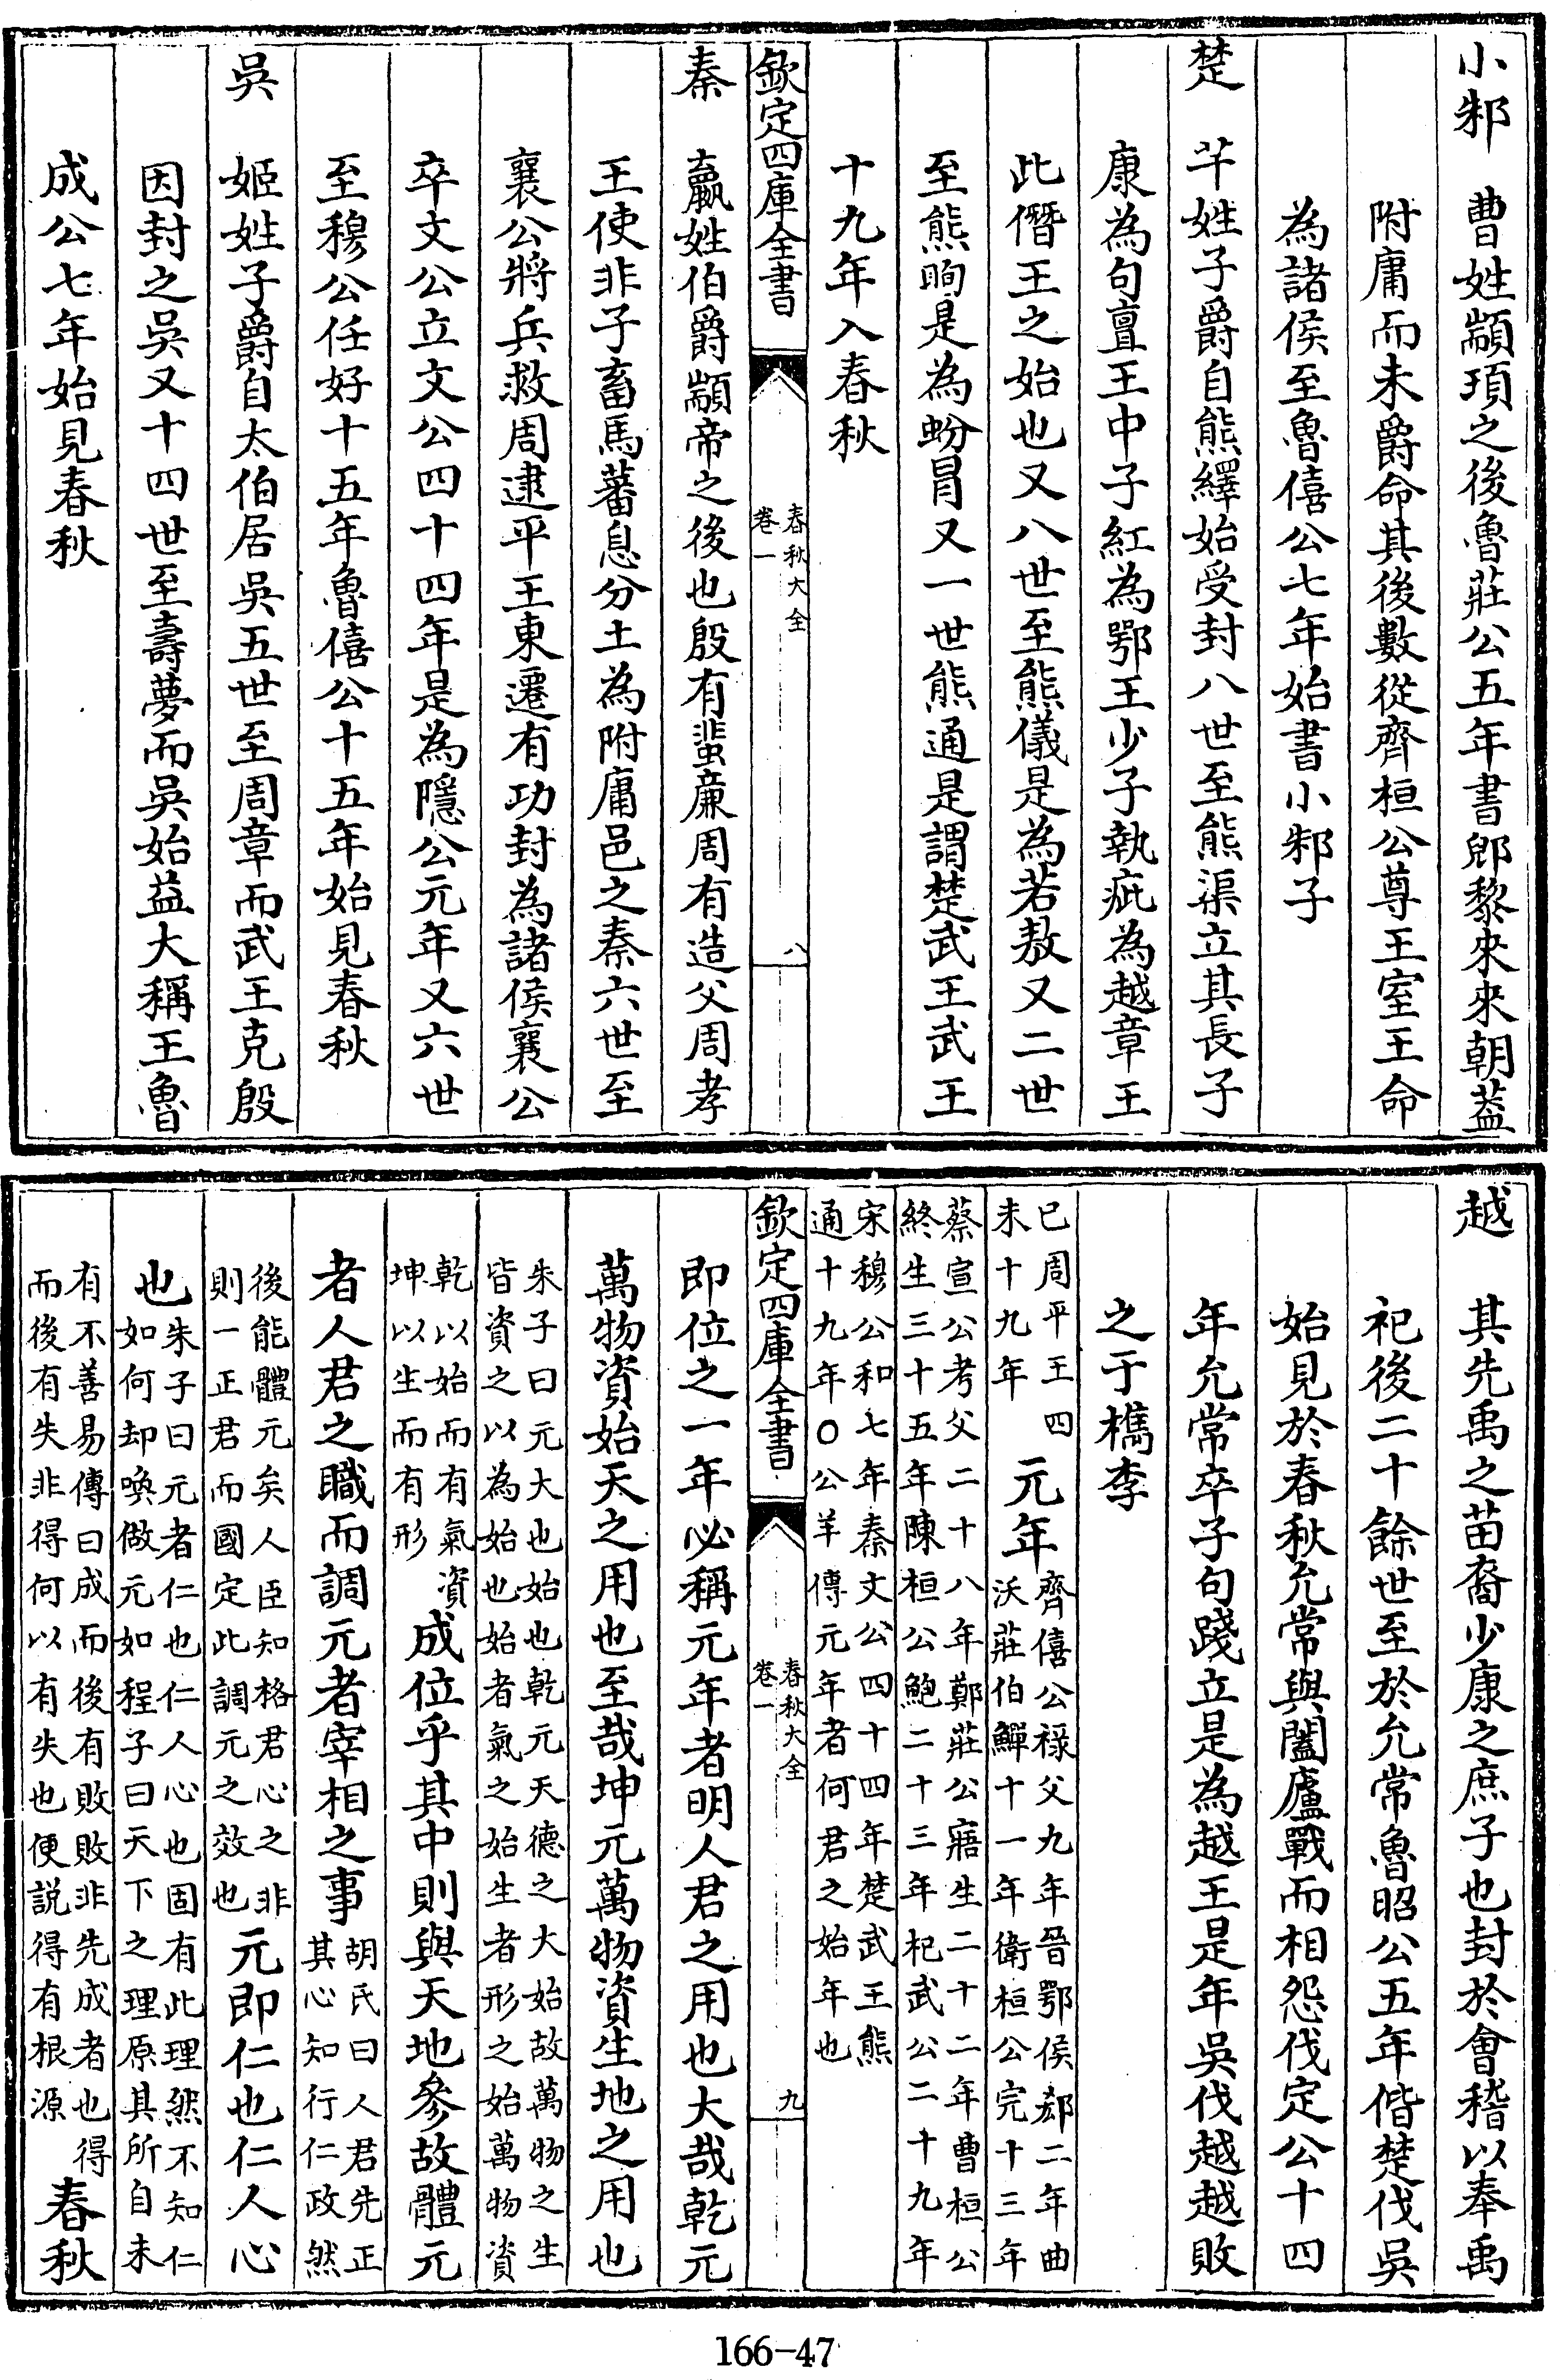 小邾　曹姓顓頊之後魯莊公五年書郳黎來來朝葢
附庸而未爵命其後數從齊桓公尊王室王命
為諸侯至魯僖公七年始書小邾子
楚　芊姓子爵自熊繹始受封八世至熊渠立其長子
康為句亶王中子紅為鄂王少子執疵為越章王
此僭王之始也又八世至熊儀是為若敖又二世
至熊眴是為蚡冒又一世熊通是謂楚武王武王
十九年入春秋
欽定四庫全書　春秋大全　卷一　八
秦　嬴姓伯爵顓帝之後也殷有蜚廉周有造父周孝
王使非子畜馬蕃息分土為附庸邑之秦六世至
襄公將兵救周逮平王東遷有功封為諸侯襄公
卒文公立文公四十四年是為隱公元年又六世
至穆公任好十五年魯僖公十五年始見春秋
吳　姬姓子爵自太伯居吳五世至周章而武王克殷
因封之吳又十四世至壽夢而吳始益大稱王魯
成公七年始見春秋
越　其先禹之苗裔少康之庶子也封於會稽以奉禹
祀後二十餘世至於允常魯昭公五年偕楚伐吳
始見於春秋允常與闔廬戰而相怨伐定公十四
年允常卒子句踐立是為越王是年吳伐越越敗
之于檇李
己周平王四
未十九年
元年
齊僖公祿父九年晉鄂侯郄二年曲
沃莊伯鱓十一年衛桓公完十三年
蔡宣公考父二十八年鄭莊公寤生二十二年曹桓公
終生三十五年陳桓公鮑二十三年杞武公二十九年
宋穆公和七年秦文公四十四年楚武王熊
通十九年○公羊傳元年者何君之始年也
欽定四庫全書　春秋大全　卷一　九
即位之一年必稱元年者明人君之用也大哉乾元
萬物資始天之用也至哉坤元萬物資生地之用也
朱子曰元大也始也乾元天德之大始故萬物之生
皆資之以為始也始者氣之始生者形之始萬物資
乾以始而有氣資
坤以生而有形
成位乎其中則與天地參故體元
者人君之職而調元者宰相之事
胡氏曰人君先正
其心知行仁政然
後能體元矣人臣知格君心之非
則一正君而國定此調元之效也
元即仁也仁人心
也
朱子曰元者仁也仁人心也固有此理然不知仁
如何却喚做元如程子曰天下之理原其所自未
有不善易傳曰成而後有敗敗非先成者也得
而後有失非得何以有失也便説得有根源
春秋
166-47